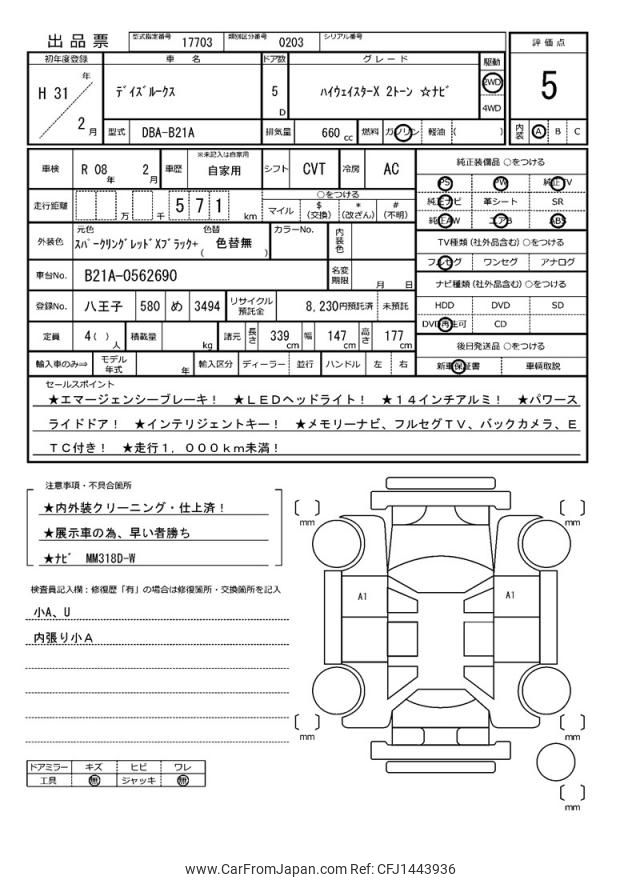 出品票 型式指定番号 17703 類別区分番号 0203 シリアル番号
初年度登録 車 名 ドア数 グレード 駆動 評価点
H 31 年 2 月 ﾃﾞｲｽﾞﾙｰｸｽ 5 D ﾊｲｳｪｲｽﾀｰX 2ﾄｰﾝ ☆ﾅﾋﾞ 2WD 4WD 5
型式 DBA-B21A 排気量 660 cc 燃料 ガソリン 軽油 ( ) 内装 A B C
車検 R 08 年 2 月 車歴 ※未記入は自家用 自家用 シフト CVT 冷房 AC
純正装備品 ○をつける
PS PW 純正TV
純正ナビ 革シート SR
純正AW エアB ABS
走行距離 万 千 5 7 1 km ○をつける マイル $(交換) *(改ざん) #(不明)
外装色 元色 色替 ｽﾊﾟｰｸﾘﾝｸﾞﾚｯﾄﾞXﾌﾞﾗｯｸ+ ( 色替無 ) カラーNo. 内装色
TV種類 (社外品含む) ○をつける
フルセグ ワンセグ アナログ
車台No. B21A-0562690 名変期限 月 日
ナビ種類 (社外品含む) ○をつける
HDD DVD SD
DVD再生可 CD
登録No. 八王子 580 め 3494 リサイクル預託金 8,230円預託済 未預託
定員 4( ) 人 積載量 kg 諸元 長さ 339 cm 幅 147 cm 高さ 177 cm
後日発送品 ○をつける
新車保証書 車輌取説
輸入車のみ⇒ モデル年式 年 輸入区分 ディーラー 並行 ハンドル 左 右
セールスポイント
★エマージェンシーブレーキ！ ★ＬＥＤヘッドライト！ ★１４インチアルミ！ ★パワース
ライドドア！ ★インテリジェントキー！ ★メモリーナビ、フルセグＴＶ、バックカメラ、Ｅ
ＴＣ付き！ ★走行１，０００ｋｍ未満！
注意事項・不具合箇所
★内外装クリーニング・仕上済！
★展示車の為、早い者勝ち
★ﾅﾋﾞ MM318D-W
検査員記入欄：修復歴「有」の場合は修復箇所・交換箇所を記入
小A、U
内張り小Ａ
mm mm
A1 A1
mm mm
mm
ドアミラー キズ ヒビ ワレ
工具 無 ジャッキ 無
www.CarFromJapan.com Ref: CFJ1443936